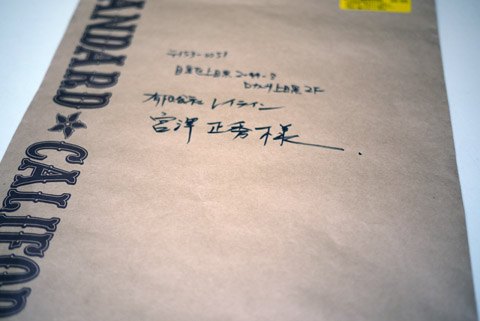 目黒区上目黒2-44-9
上目黒2F
有限会社 レイライン
宮澤 正秀 様
ANDARD ★ CALIFOR